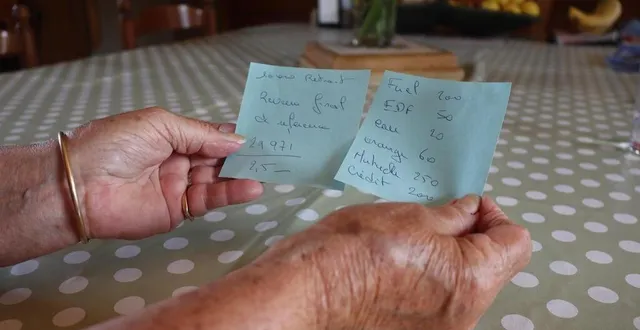 Revenu fiscal
de référence
21 971
2,5
Fuel 200
EDF 50
eau 20
orange 60
Mutuelle 250
Crédit 200